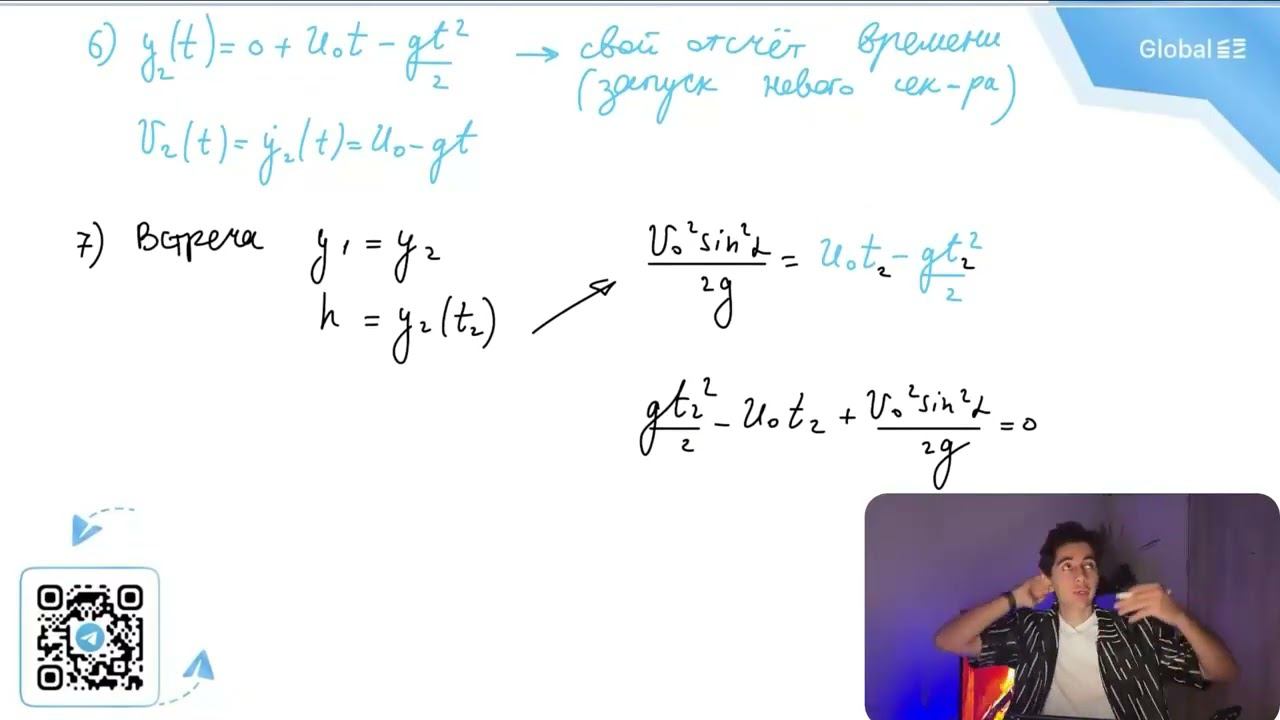 6) y₂(t) = 0 + u₀t − gt²/2 → свой отсчёт времени
(запуск нового сек-ра)
V₂(t) = ẏ₂(t) = u₀ − gt
Global ΞΞ
7) Встреча y₁ = y₂
h = y₂(t₂)
V₀²sin²α/2g = u₀t₂ − gt₂²/2
gt₂²/2 − u₀t₂ + V₀²sin²α/2g = 0